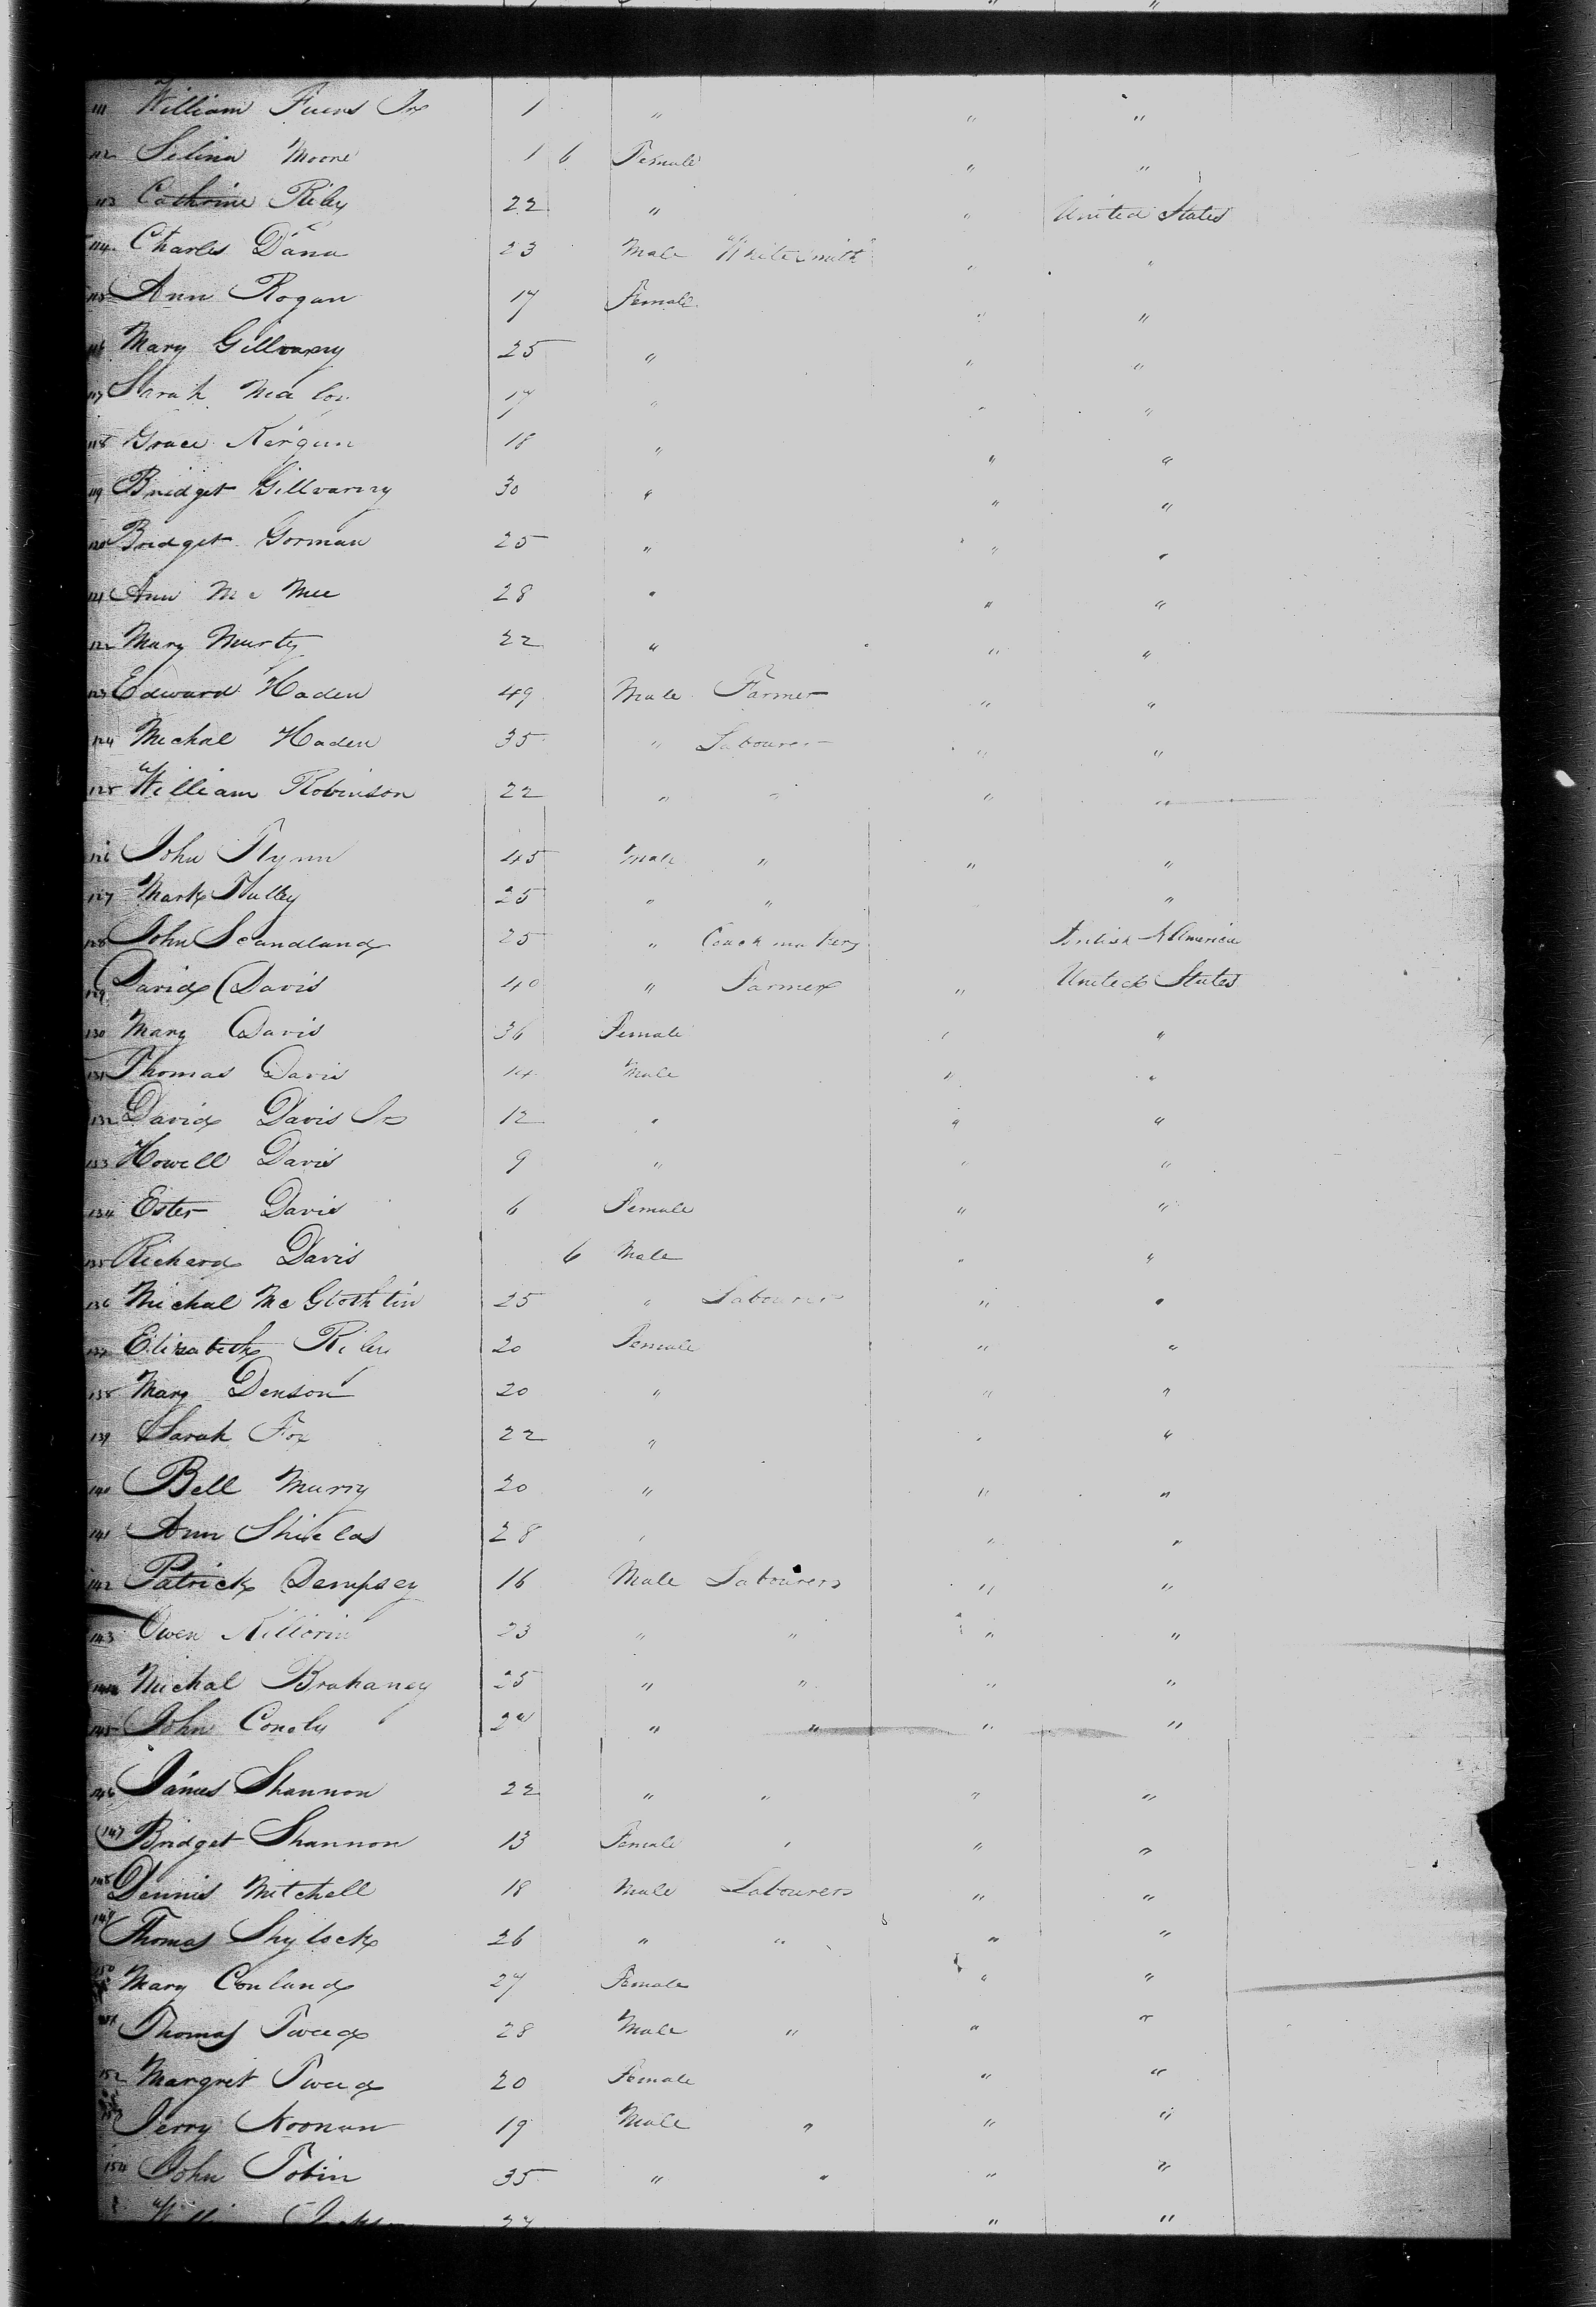 111 William Fuers Jr 1 " " "
112 Selina Moore 1 6 Female " "
113 Cathrine Riley 22 " " United States
114 Charles Dana 23 Male White Smith " "
115 Ann Rogan 17 Female " "
116 Mary Gillvarry 25 " " "
117 Sarah 17 " " "
118 Grace Kergun 18 " " "
119 Bridget Gillvarry 30 " " "
120 Bridget Gorman 25 " " "
121 Ann Mc Mee 28 " " "
122 Mary Murty 22 " " "
123 Edward Haden 49 Male Farmer " "
124 Michal Haden 35 " Labourer " "
125 William Robinson 22 " " " "
126 John Flynn 45 Male " " "
127 Mark Tulley 25 " " "
128 John Scandland 25 " Coach makers British N America
129 David Davis 40 " Farmer " United States
130 Mary Davis 36 Female " "
131 Thomas Davis 14 Male " "
132 David Davis Jr 12 " " "
133 Howell Davis 9 " " "
134 Ester Davis 6 Female " "
135 Richard Davis 6 Male " "
136 Michal Mc Glothlin 25 " Labourer " "
137 Elizabeth Riley 20 Female " "
138 Mary Denson 20 " " "
139 Sarah Fox 22 " " "
140 Bell Murry 20 " " "
141 Ann Shields 28 " " "
142 Patrick Dempsey 16 Male Labourers " "
143 Owen Killorin 23 " " " "
144 Michal Brahaney 25 " " " "
145 John Conoly " " " "
146 James Shannon 22 " " " "
147 Bridget Shannon 13 Female " " "
148 Dennis Mitchell 18 Male Labourers " "
149 Thomas Shylock 26 " " " "
150 Mary Conland 27 Female " "
151 Thomas Tweed 28 Male " " "
152 Margret Tweed 20 Female " "
153 Jerry Noonan 19 Male " " "
154 John Tobin 35 " " " "
" "